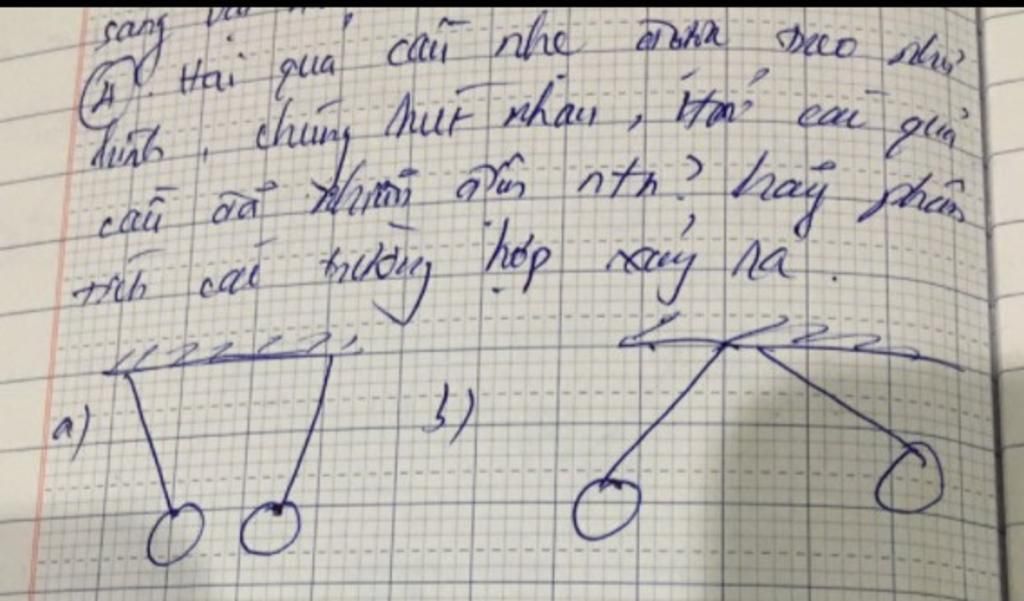 sang
④. Hai quả cầu nhẹ được treo như
hình, chúng hút nhau, Hỏi các quả
cầu đã nhiễm điện ntn? hãy phân
tích các trường hợp xảy ra.
a) b)